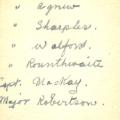 " Agnew
" Sharples.
" Walford.
" Rounthwaite
Capt. MacKay.
Major Robertson.